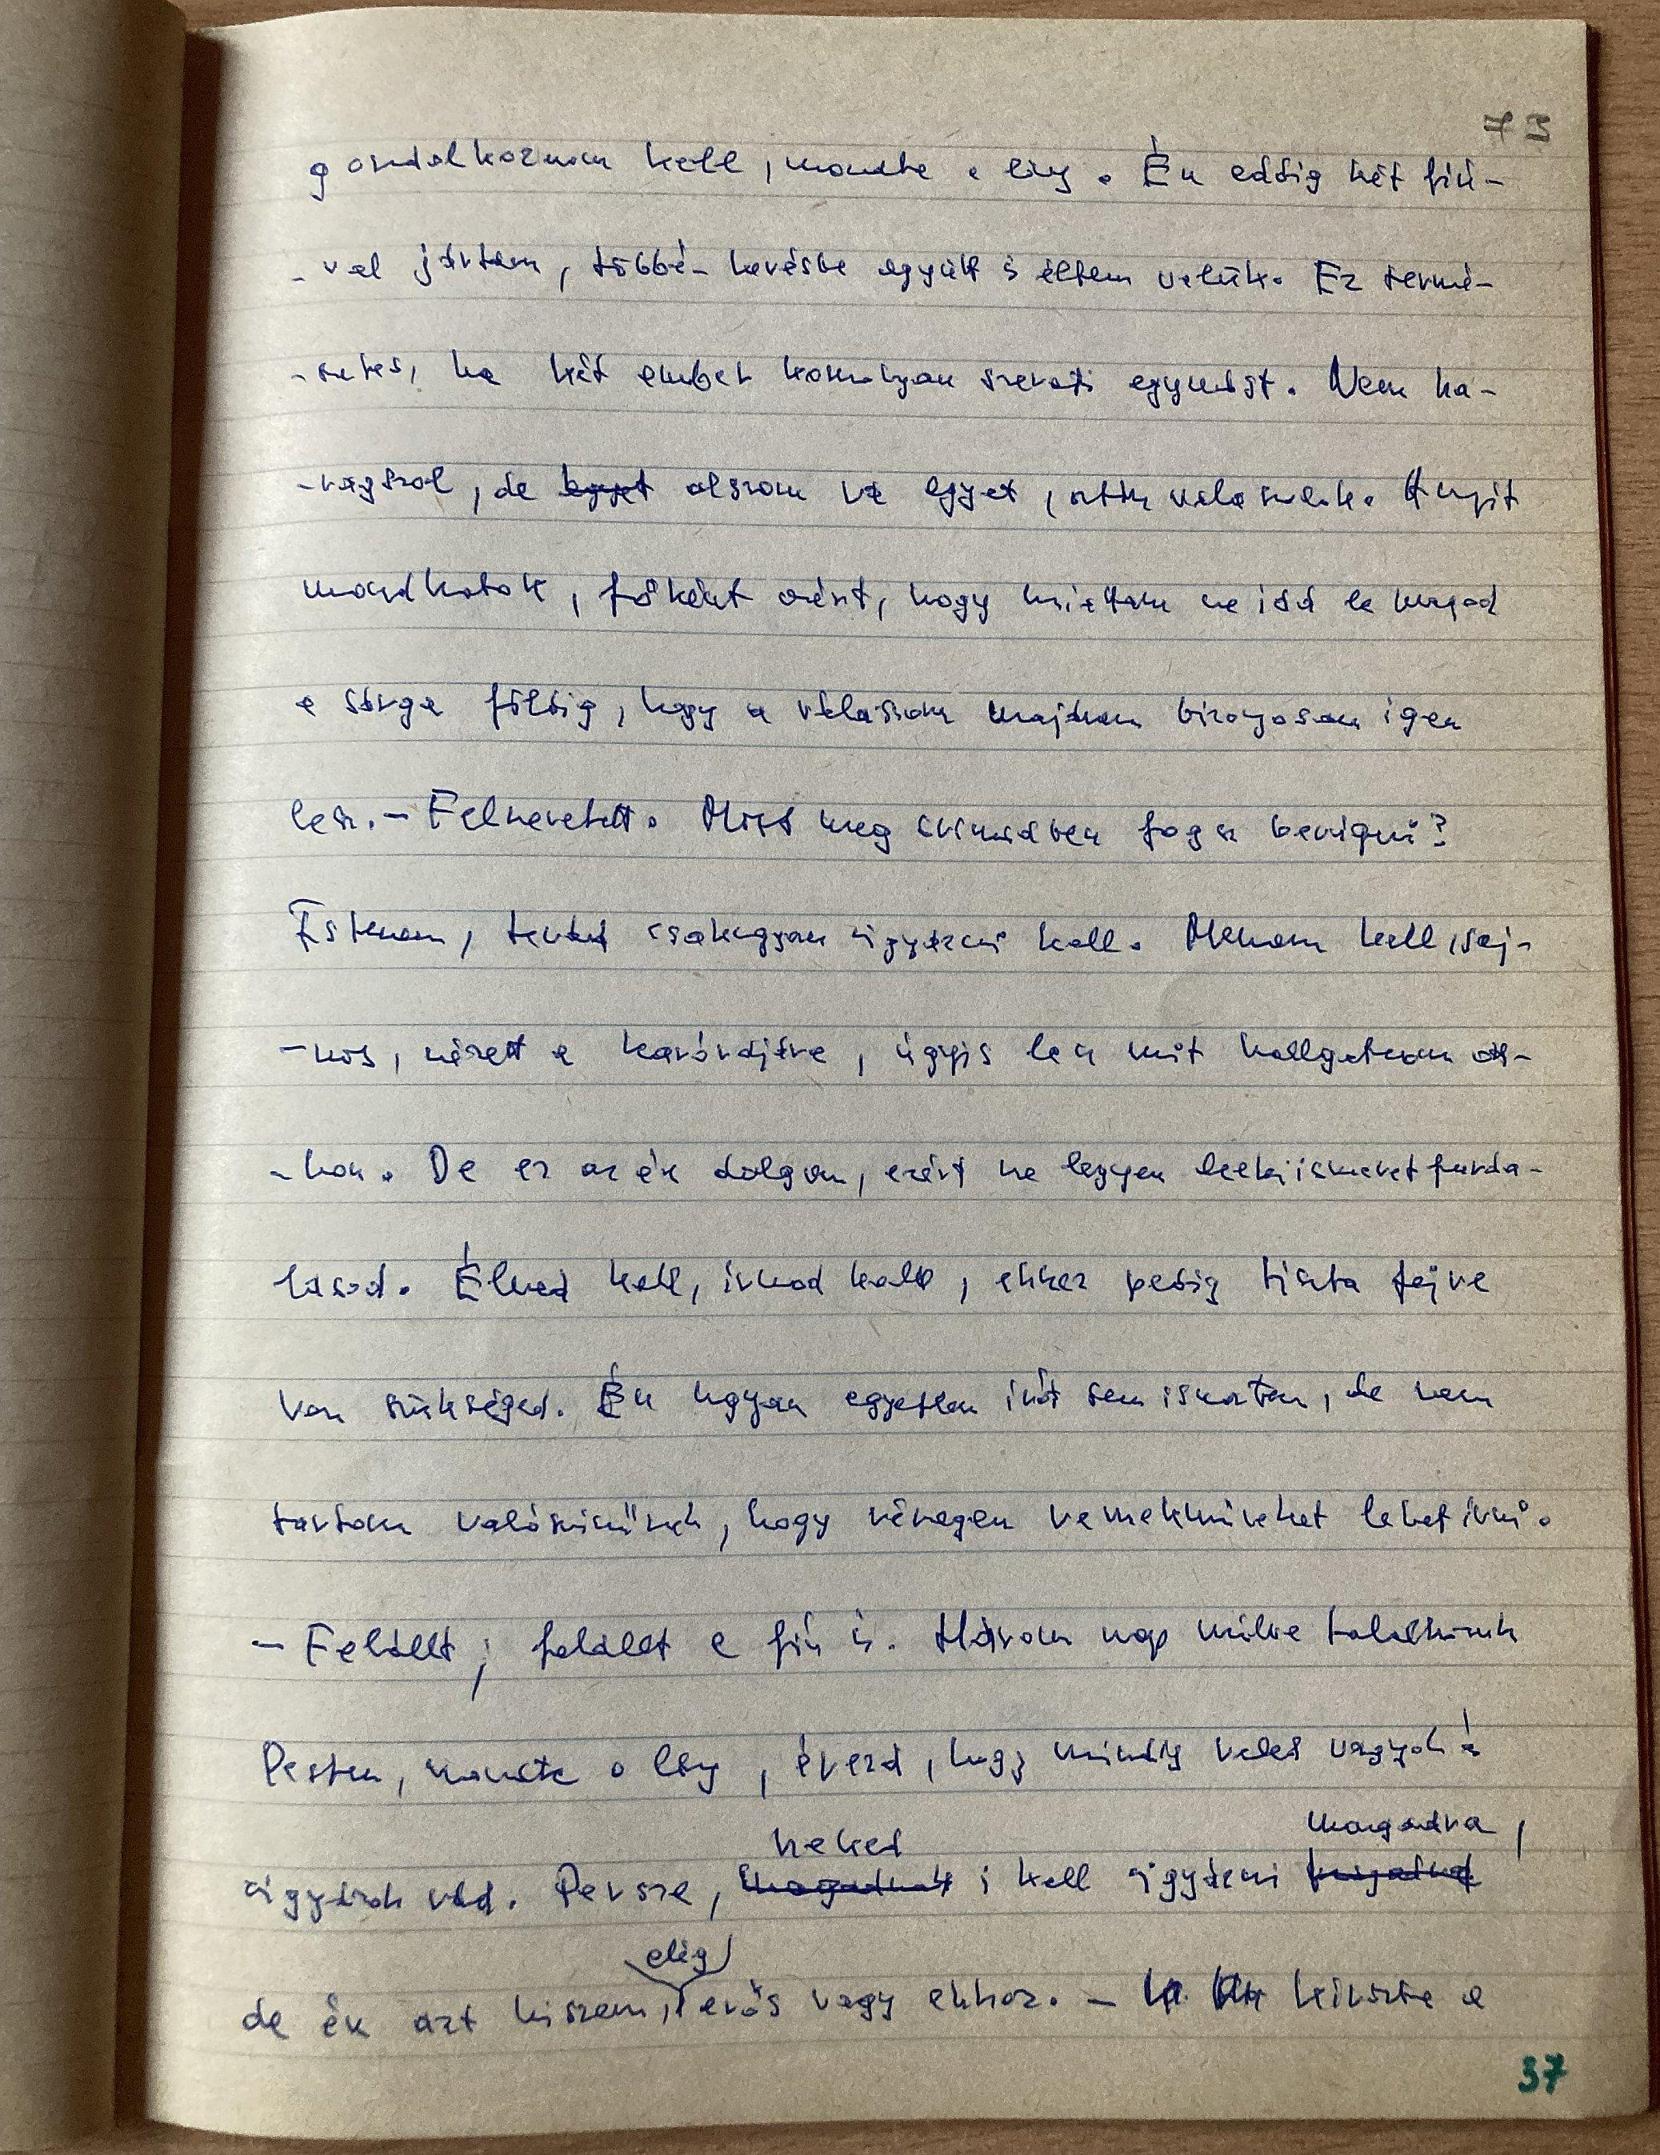 73
gondolkoznom kell, mondta a lány. Én eddig két fiú-
-val jártam, többé-kevésbé együtt is éltem velük. Ez termé-
-szetes, ha két ember komolyan szereti egymást. Nem ha-
-ragszol, de egyet alszom rá egyet, aztán válaszolok. Annyit
mondhatok, főként azért, hogy miattam ne idd le magad
a sárga földig, hogy a válaszom majdnem bizonyosan igen
lesz. – Felnevetett. Most meg
Istenem, terád csakugyan vigyázni kell. Mennem kell, saj-
-nos, nézett a karórájára, úgyis lesz mit hallgatnom ott-
-hon. De ez az én dolgom, ezért ne legyen lelkiismeretfurda-
lásod. Élned kell, írnod kell, ehhez pedig tiszta fejre
van szükséged. Én ugyan egyetlen írót sem ismertem, de nem
tartom valószínűnek, hogy részegen remekműveket lehet írni.
– Felállt, felállt a fiú is. Három nap múlva találkozunk
Pesten, mondta a lány, érezd, hogy mindig veled vagyok és
neked magadra,
vigyázok rád. Persze, magadnak is kell vigyázni magadra
elég
de én azt hiszem, erős vagy ehhez. – kihúzta a
37